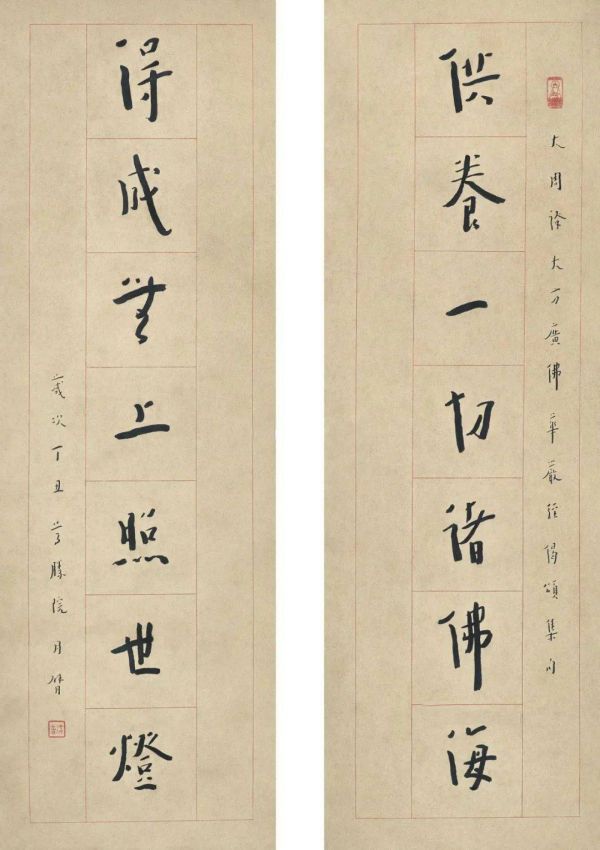 大周譯大方廣佛華嚴經偈頌集句
供養一切諸佛海
得成無上照世燈
歲次丁丑尊勝院月臂